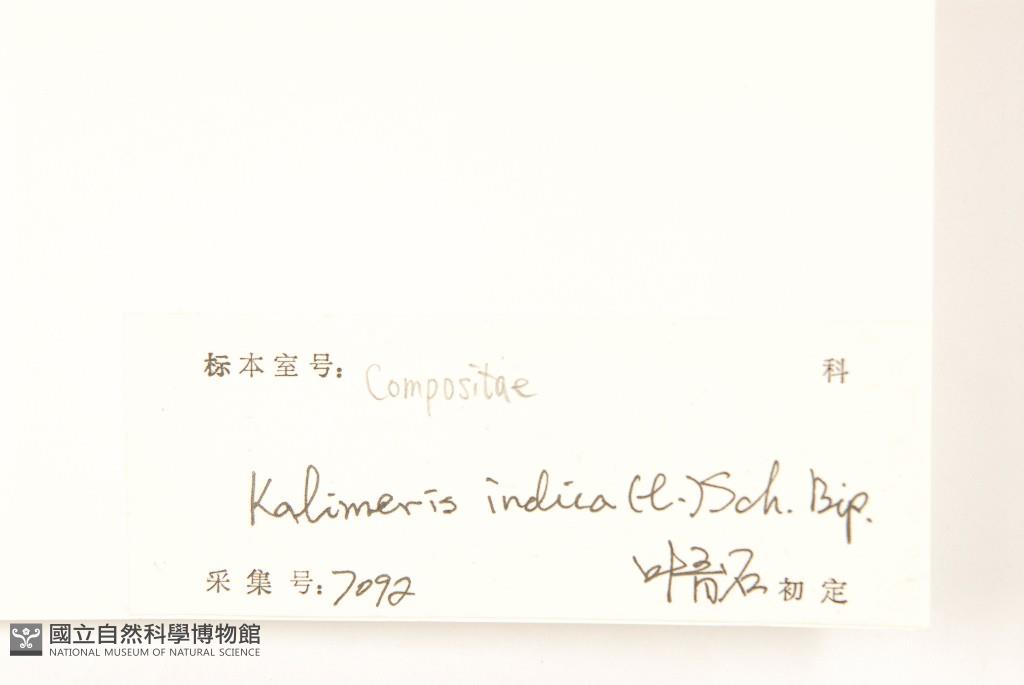 标本室号: Compositae 科
Kalimeris indica (L.) Sch. Bip.
采集号: 7092 叶育石 初定
國立自然科學博物館
NATIONAL MUSEUM OF NATURAL SCIENCE